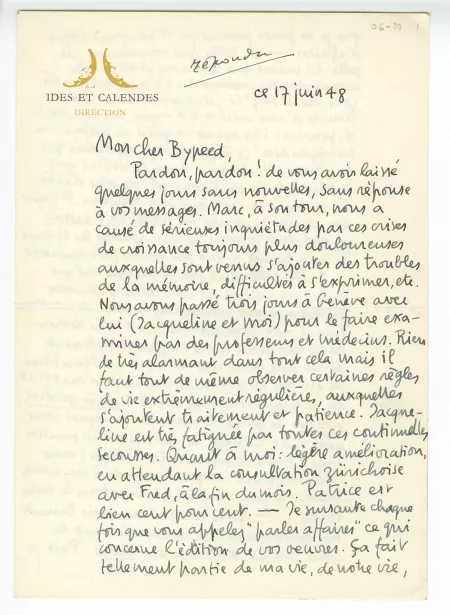 06-29 1
répondu
I. C.
IDES ET CALENDES
DIRECTION
ce 17 juin 48
Mon cher Bypeed,
Pardon, pardon ! de vous avoir laissé
quelques jours sans nouvelles, sans réponse
à vos messages. Marc, à son tour, nous a
causé de sérieuses inquiétudes par ces crises
de croissance toujours plus douloureuses
auxquelles sont venus s'ajouter des troubles
de la mémoire, difficultés à s'exprimer, etc.
Nous avons passé trois jours à Genève avec
lui (Jacqueline et moi) pour le faire exa-
miner par des professeurs et médecins. Rien
de très alarmant dans tout cela mais il
faut tout de même observer certaines règles
de vie extrêmement régulière, auxquelles
s'ajoutent traitement et patience. Jacque-
line est très fatiguée par toutes ces continuelles
secousses. Quant à moi : légère amélioration,
en attendant la consultation zürichoise
avec Fred, à la fin du mois. Patrice est
bien cent pour cent. — Je sursaute chaque
fois que vous appelez "parler affaires" ce qui
concerne l'édition de vos oeuvres. Ça fait
tellement partie de ma vie, de notre vie,